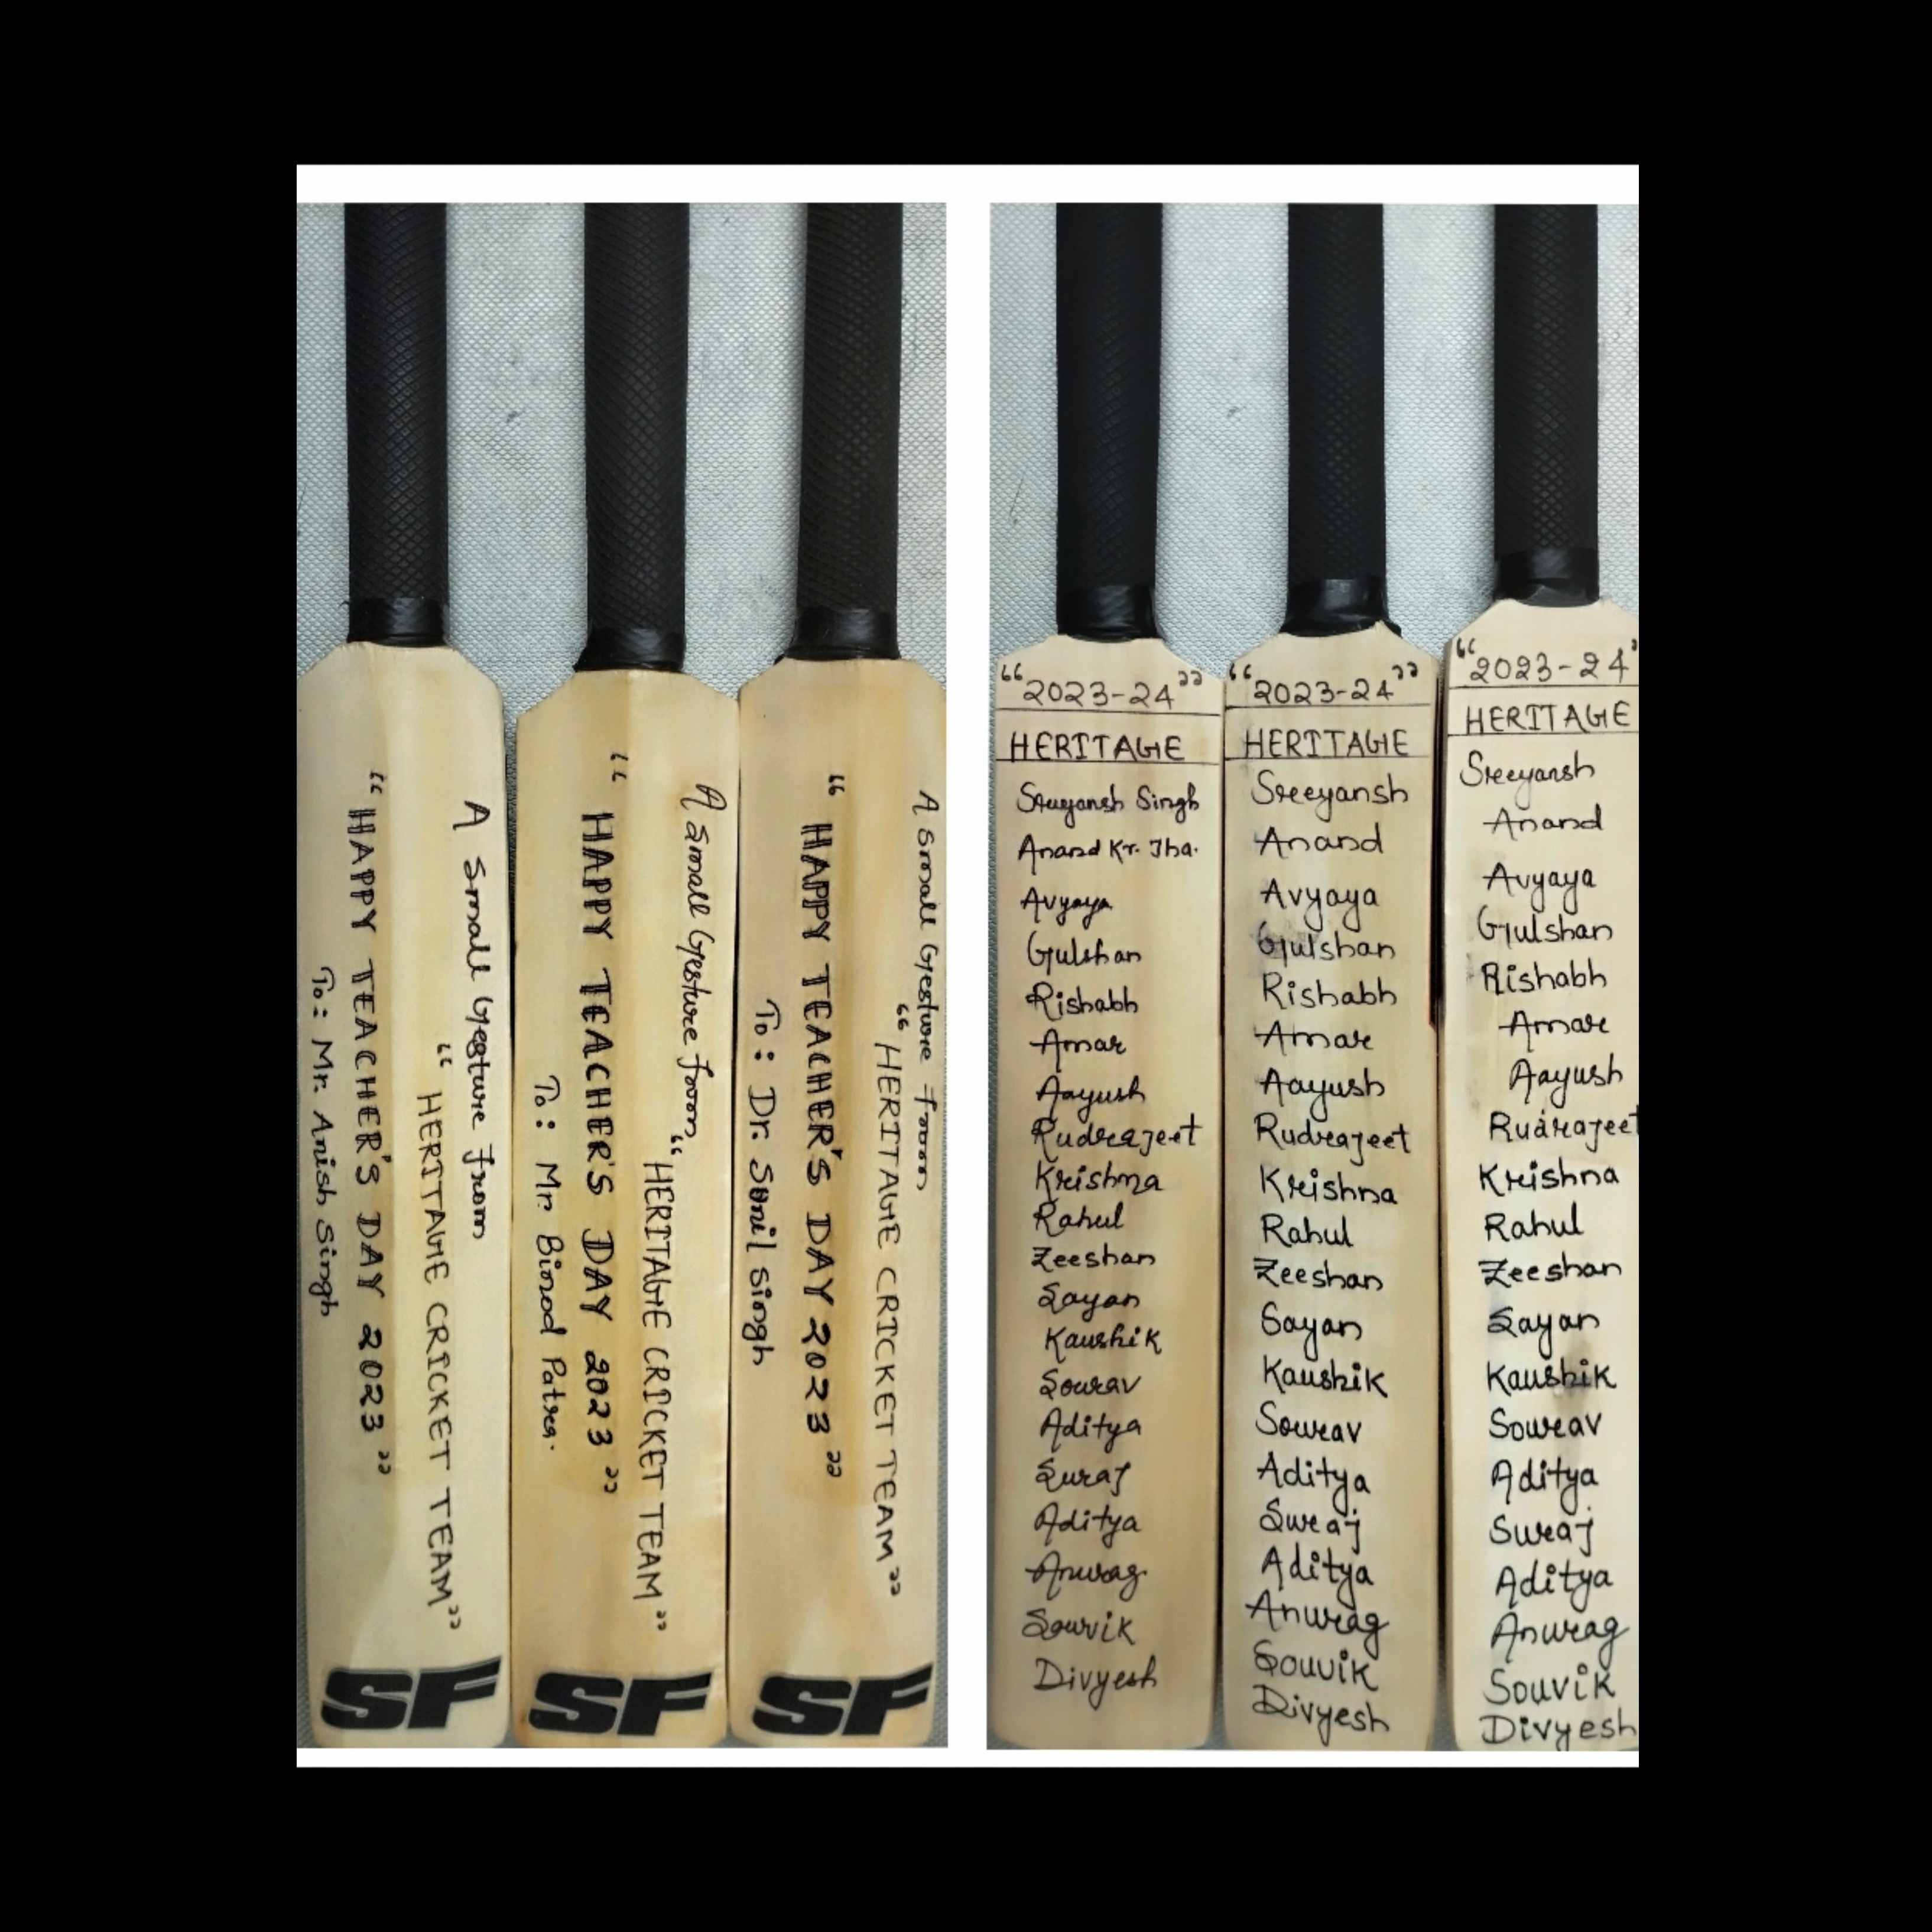 A Small Gesture from
"HERITAGE CRICKET TEAM"
"HAPPY TEACHER'S DAY 2023"
To: Mr. Anish Singh
SF
A Small Gesture from
"HERITAGE CRICKET TEAM"
"HAPPY TEACHER'S DAY 2023"
To: Mr. Binod Patra.
SF
A Small Gesture from
"HERITAGE CRICKET TEAM"
"HAPPY TEACHER'S DAY 2023"
To: Dr. Sunil Singh
SF
"2023-24"
HERITAGE
Sreyansh Singh
Anand Kr. Jha.
Avyaya
Gulshan
Rishabh
Amar
Aayush
Rudrajeet
Krishna
Rahul
Zeeshan
Sayan
Kaushik
Sourav
Aditya
Suraj
Aditya
Anurag
Souvik
Divyesh
"2023-24"
HERITAGE
Sreeyansh
Anand
Avyaya
Gulshan
Rishabh
Amar
Aayush
Rudrajeet
Krishna
Rahul
Zeeshan
Sayan
Kaushik
Sourav
Aditya
Suraj
Aditya
Anurag
Souvik
Divyesh
"2023-24"
HERITAGE
Sreeyansh
Anand
Avyaya
Gulshan
Rishabh
Amar
Aayush
Rudrajeet
Krishna
Rahul
Zeeshan
Sayan
Kaushik
Sourav
Aditya
Suraj
Aditya
Anurag
Souvik
Divyesh